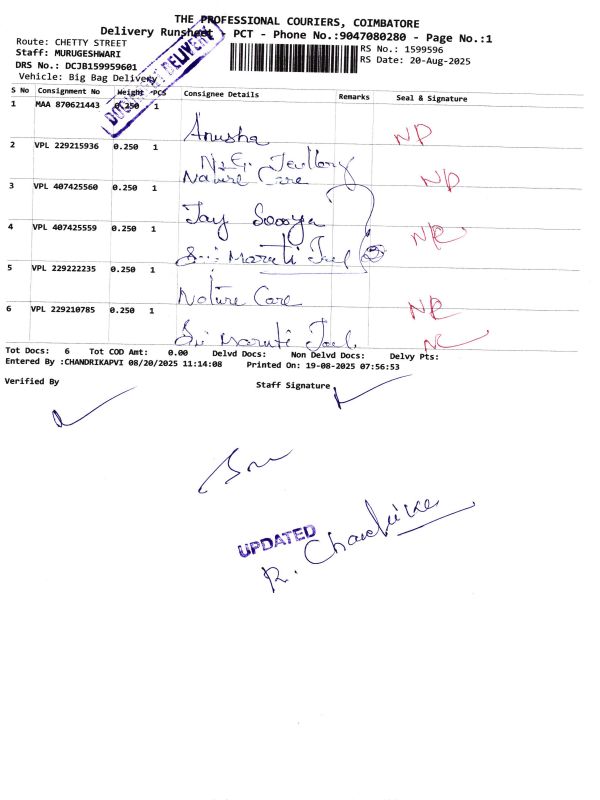 THE PROFESSIONAL COURIERS, COIMBATORE
Delivery Runsheet - PCT - Phone No.:9047080280 - Page No.:1
Route: CHETTY STREET
Staff: MURUGESHWARI
DRS No.: DCJB159959601
Vehicle: Big Bag Delivery
RS No.: 1599596
RS Date: 20-Aug-2025
DOCUMENT DELIVERY
S No Consignment No Weight PCS Consignee Details Remarks Seal & Signature
1 MAA 870621443 0.250 1
Anusha NP
2 VPL 229215936 0.250 1
Nature Care NP
3 VPL 407425560 0.250 1
Jay Sooya
4 VPL 407425559 0.250 1
Sri Maruti
5 VPL 229222235 0.250 1
Nature Care
6 VPL 229210785 0.250 1
Sri Maruti
Tot Docs: 6 Tot COD Amt: 0.00 Delvd Docs: Non Delvd Docs: Delvy Pts:
Entered By :CHANDRIKAPVI 08/20/2025 11:14:08 Printed On: 19-08-2025 07:56:53
Verified By Staff Signature
UPDATED
R. Chandrika